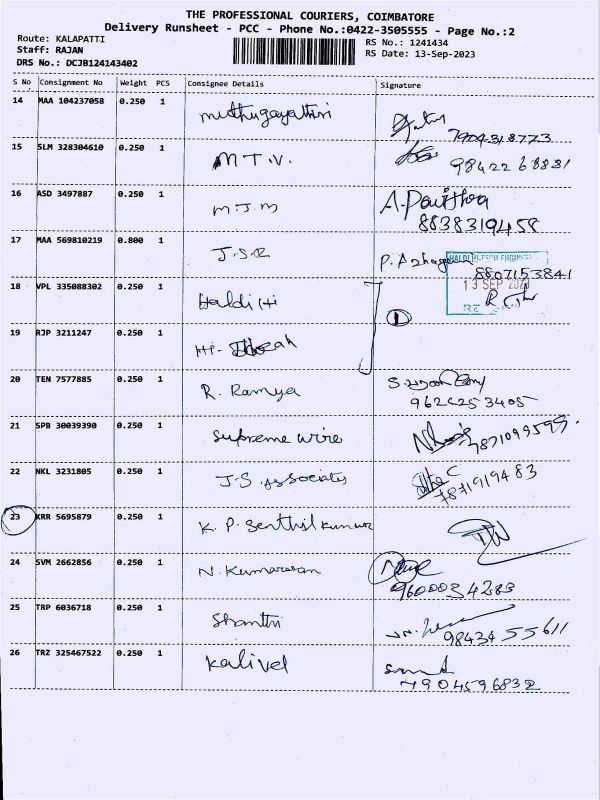 THE PROFESSIONAL COURIERS, COIMBATORE
Delivery Runsheet - PCC - Phone No.:0422-3505555 - Page No.:2
Route: KALAPATTI
Staff: RAJAN
DRS No.: DCJB124143402
RS No.: 1241434
RS Date: 13-Sep-2023
S No Consignment No Weight PCS Consignee Details Signature
14 MAA 104237058 0.250 1 muthugayathiri
7904318773
15 SLM 328304610 0.250 1 M T. V.
98422 68831
16 ASD 3497887 0.250 1 M. J. M A. Pavithra
8838319458
17 MAA 569810219 0.800 1 J. S. R P. Azhagesan
8807153841
13 SEP 2023
18 VPL 335088302 0.250 1 Haldi Hi
1
19 RJP 3211247 0.250 1 Hi-
20 TEN 7577885 0.250 1 R. Ramya
9626253405
21 SPB 30039390 0.250 1 Supreme wire
7871099599.
22 NKL 3231805 0.250 1 J-S Associates
7871919483
23 KRR 5695879 0.250 1 K. P. Senthil kumar
24 SVM 2662856 0.250 1 N. Kumarasan
9600034283
25 TRP 6036718 0.250 1 Shanthi
98434 55611
26 TRZ 325467522 0.250 1 Kalivel
7904596832